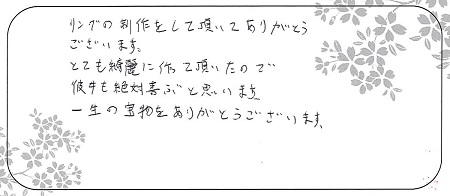 リングの制作をして頂いてありがとう
ございます。
とても綺麗に作って頂いたので
彼女も絶対喜ぶと思います
一生の宝物をありがとうございます。